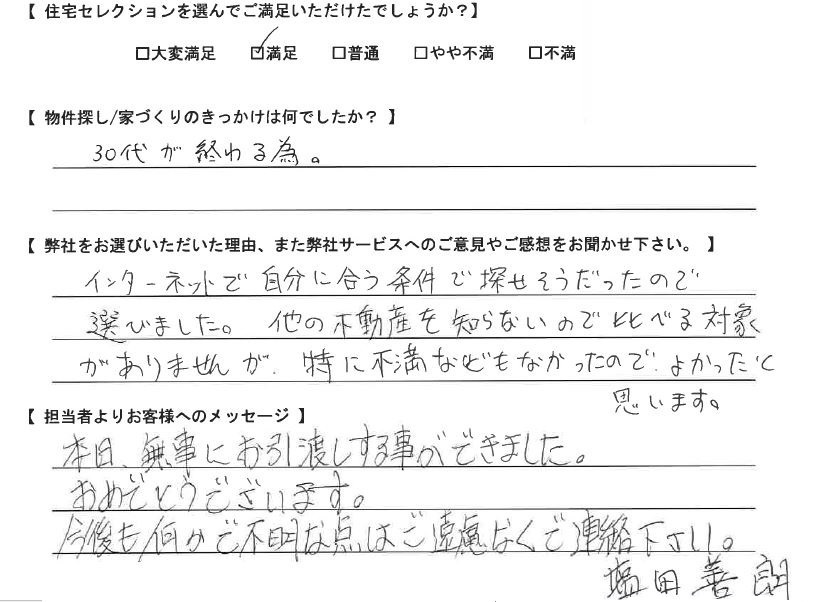 【 住宅セレクションを選んでご満足いただけたでしょうか？】
□大変満足 ☑満足 □普通 □やや不満 □不満
【 物件探し/家づくりのきっかけは何でしたか？ 】
30代が終わる為。
【 弊社をお選びいただいた理由、また弊社サービスへのご意見やご感想をお聞かせ下さい。 】
インターネットで自分に合う条件で探せそうだったので
選びました。他の不動産を知らないので比べる対象
がありませんが、特に不満などもなかったので、よかったと
思います。
【 担当者よりお客様へのメッセージ 】
本日、無事にお引渡しする事ができました。
おめでとうございます。
今後も何かご不明な点はご遠慮なくご連絡下さい。
塩田善朗